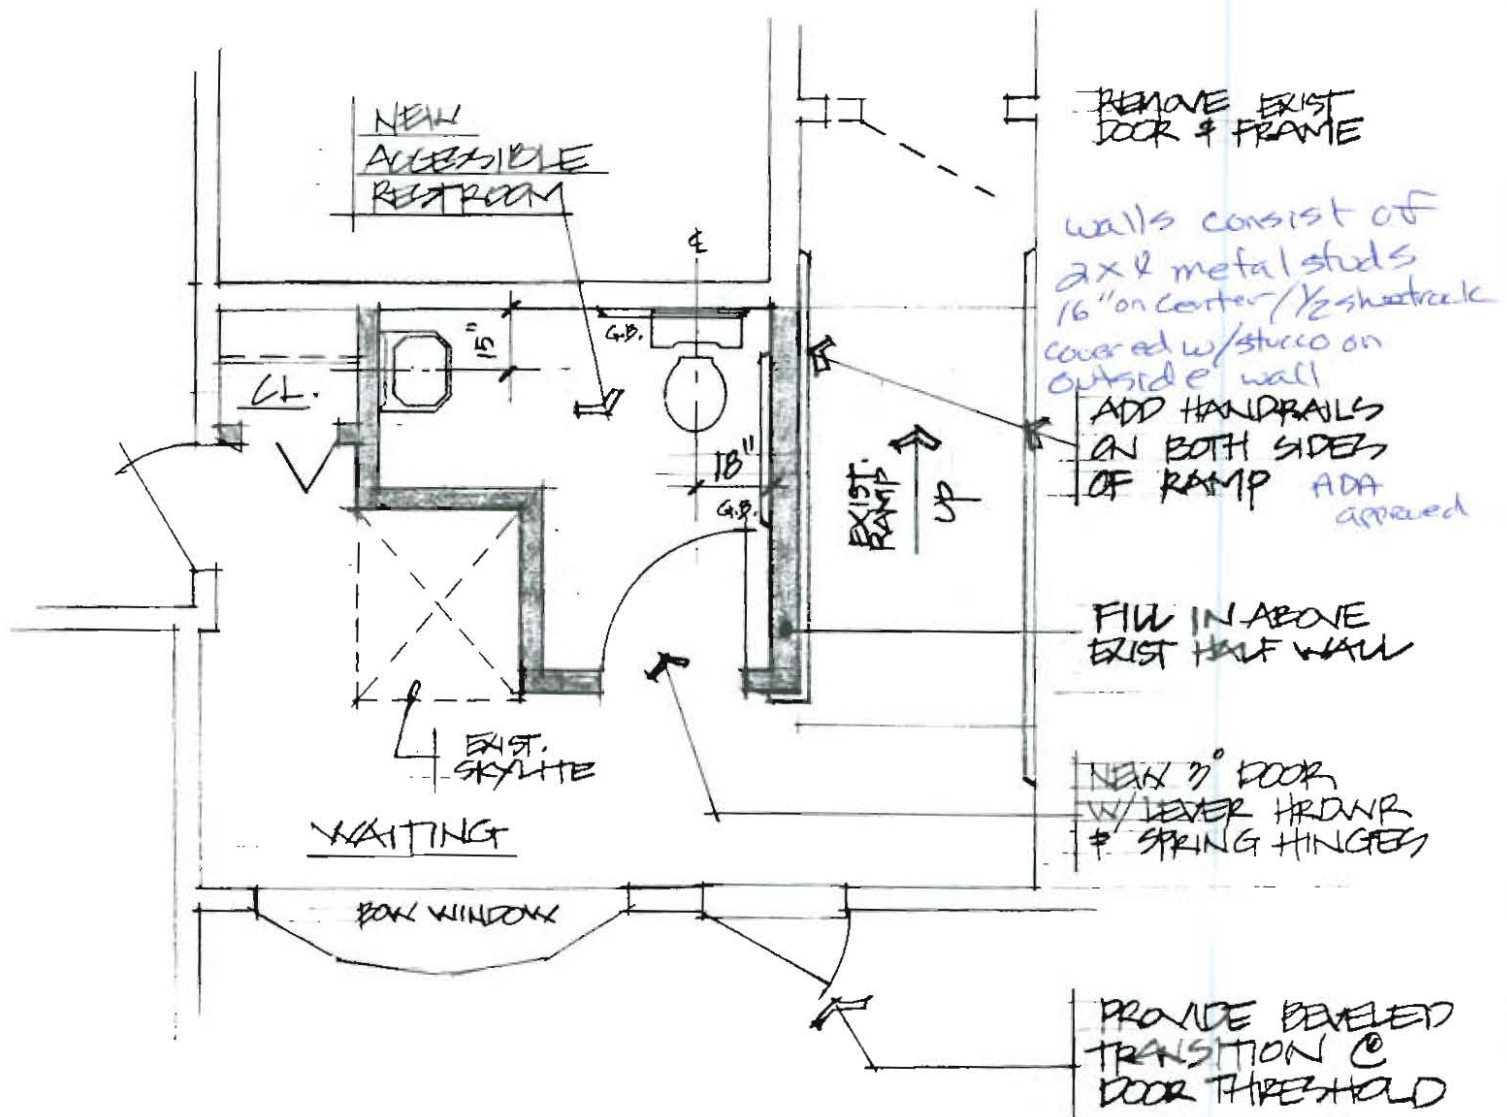 NEW
ACCESSIBLE
RESTROOM
℄
15"
G.B.
CL.
18"
G.B.
EXIST.
RAMP
UP
EXIST.
SKYLITE
WAITING
BOW WINDOW
REMOVE EXIST
DOOR & FRAME
walls consist of
2x4 metal studs
16" on center / 1/2 sheetrock
covered w/stucco on
outside wall
ADD HANDRAILS
ON BOTH SIDES
OF RAMP ADA
approved
FILL IN ABOVE
EXIST HALF WALL
NEW 3⁰ DOOR
W/ LEVER HRDWR
& SPRING HINGES
PROVIDE BEVELED
TRANSITION @
DOOR THRESHOLD